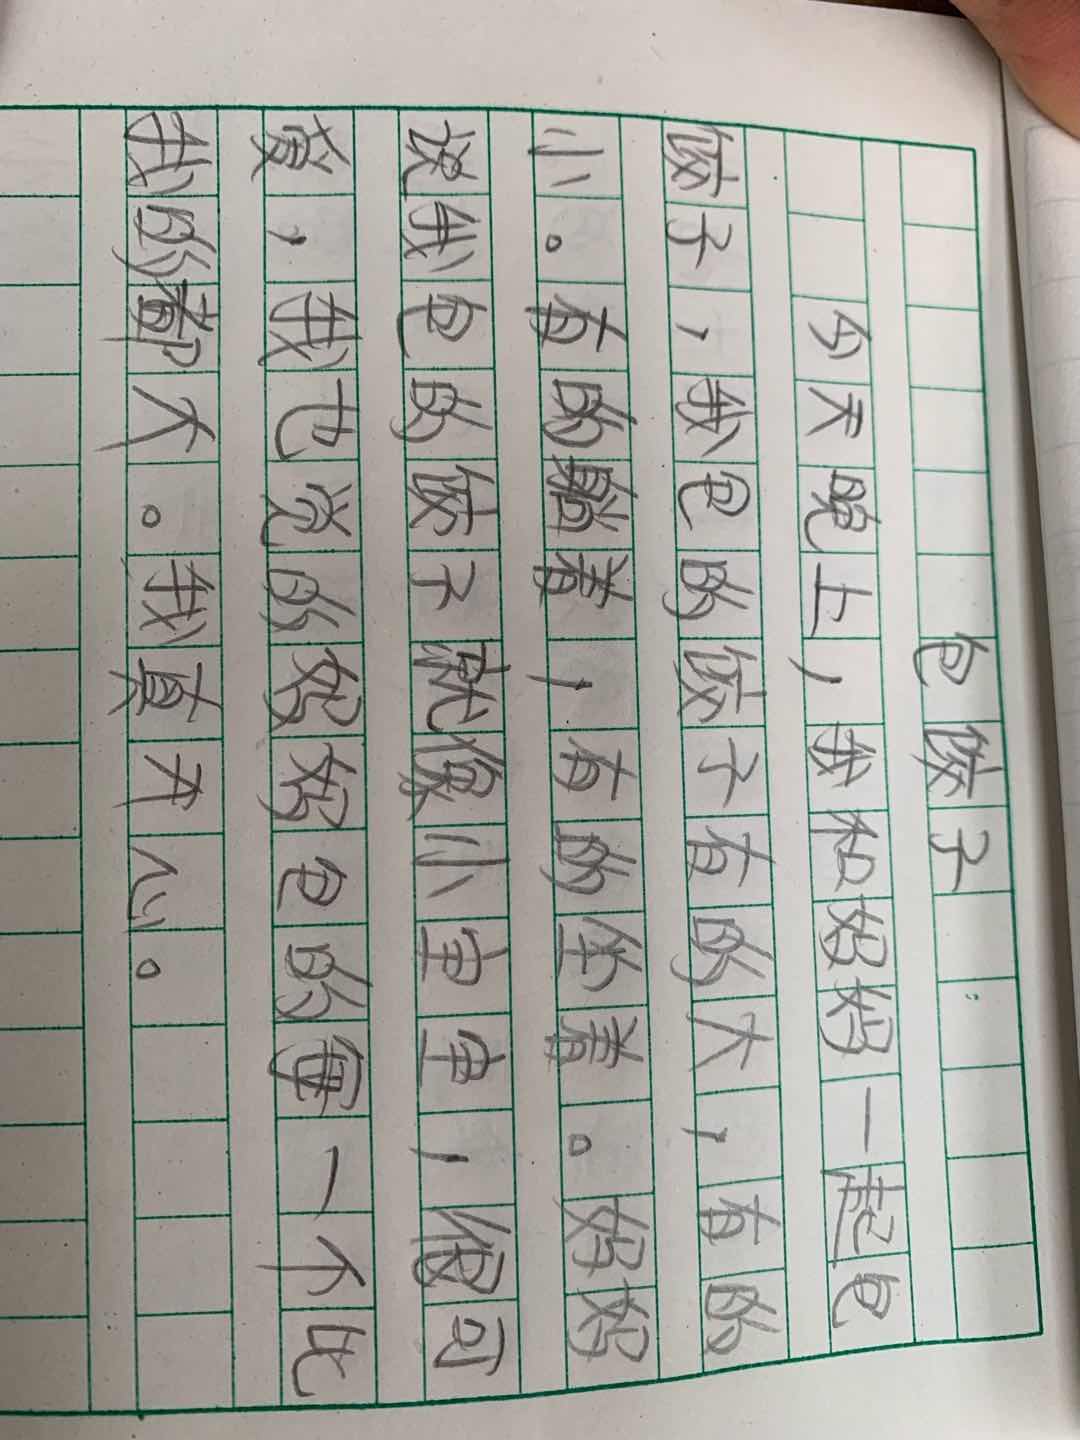 包饺子
今天晚上，我和妈妈一起包
饺子，我包的饺子有的大，有的
小。有的躺着，有的坐着。妈妈
说我包的饺子就像小宝宝，很可
爱，我也觉的妈妈包的每一个比
我的都大。我真开心。